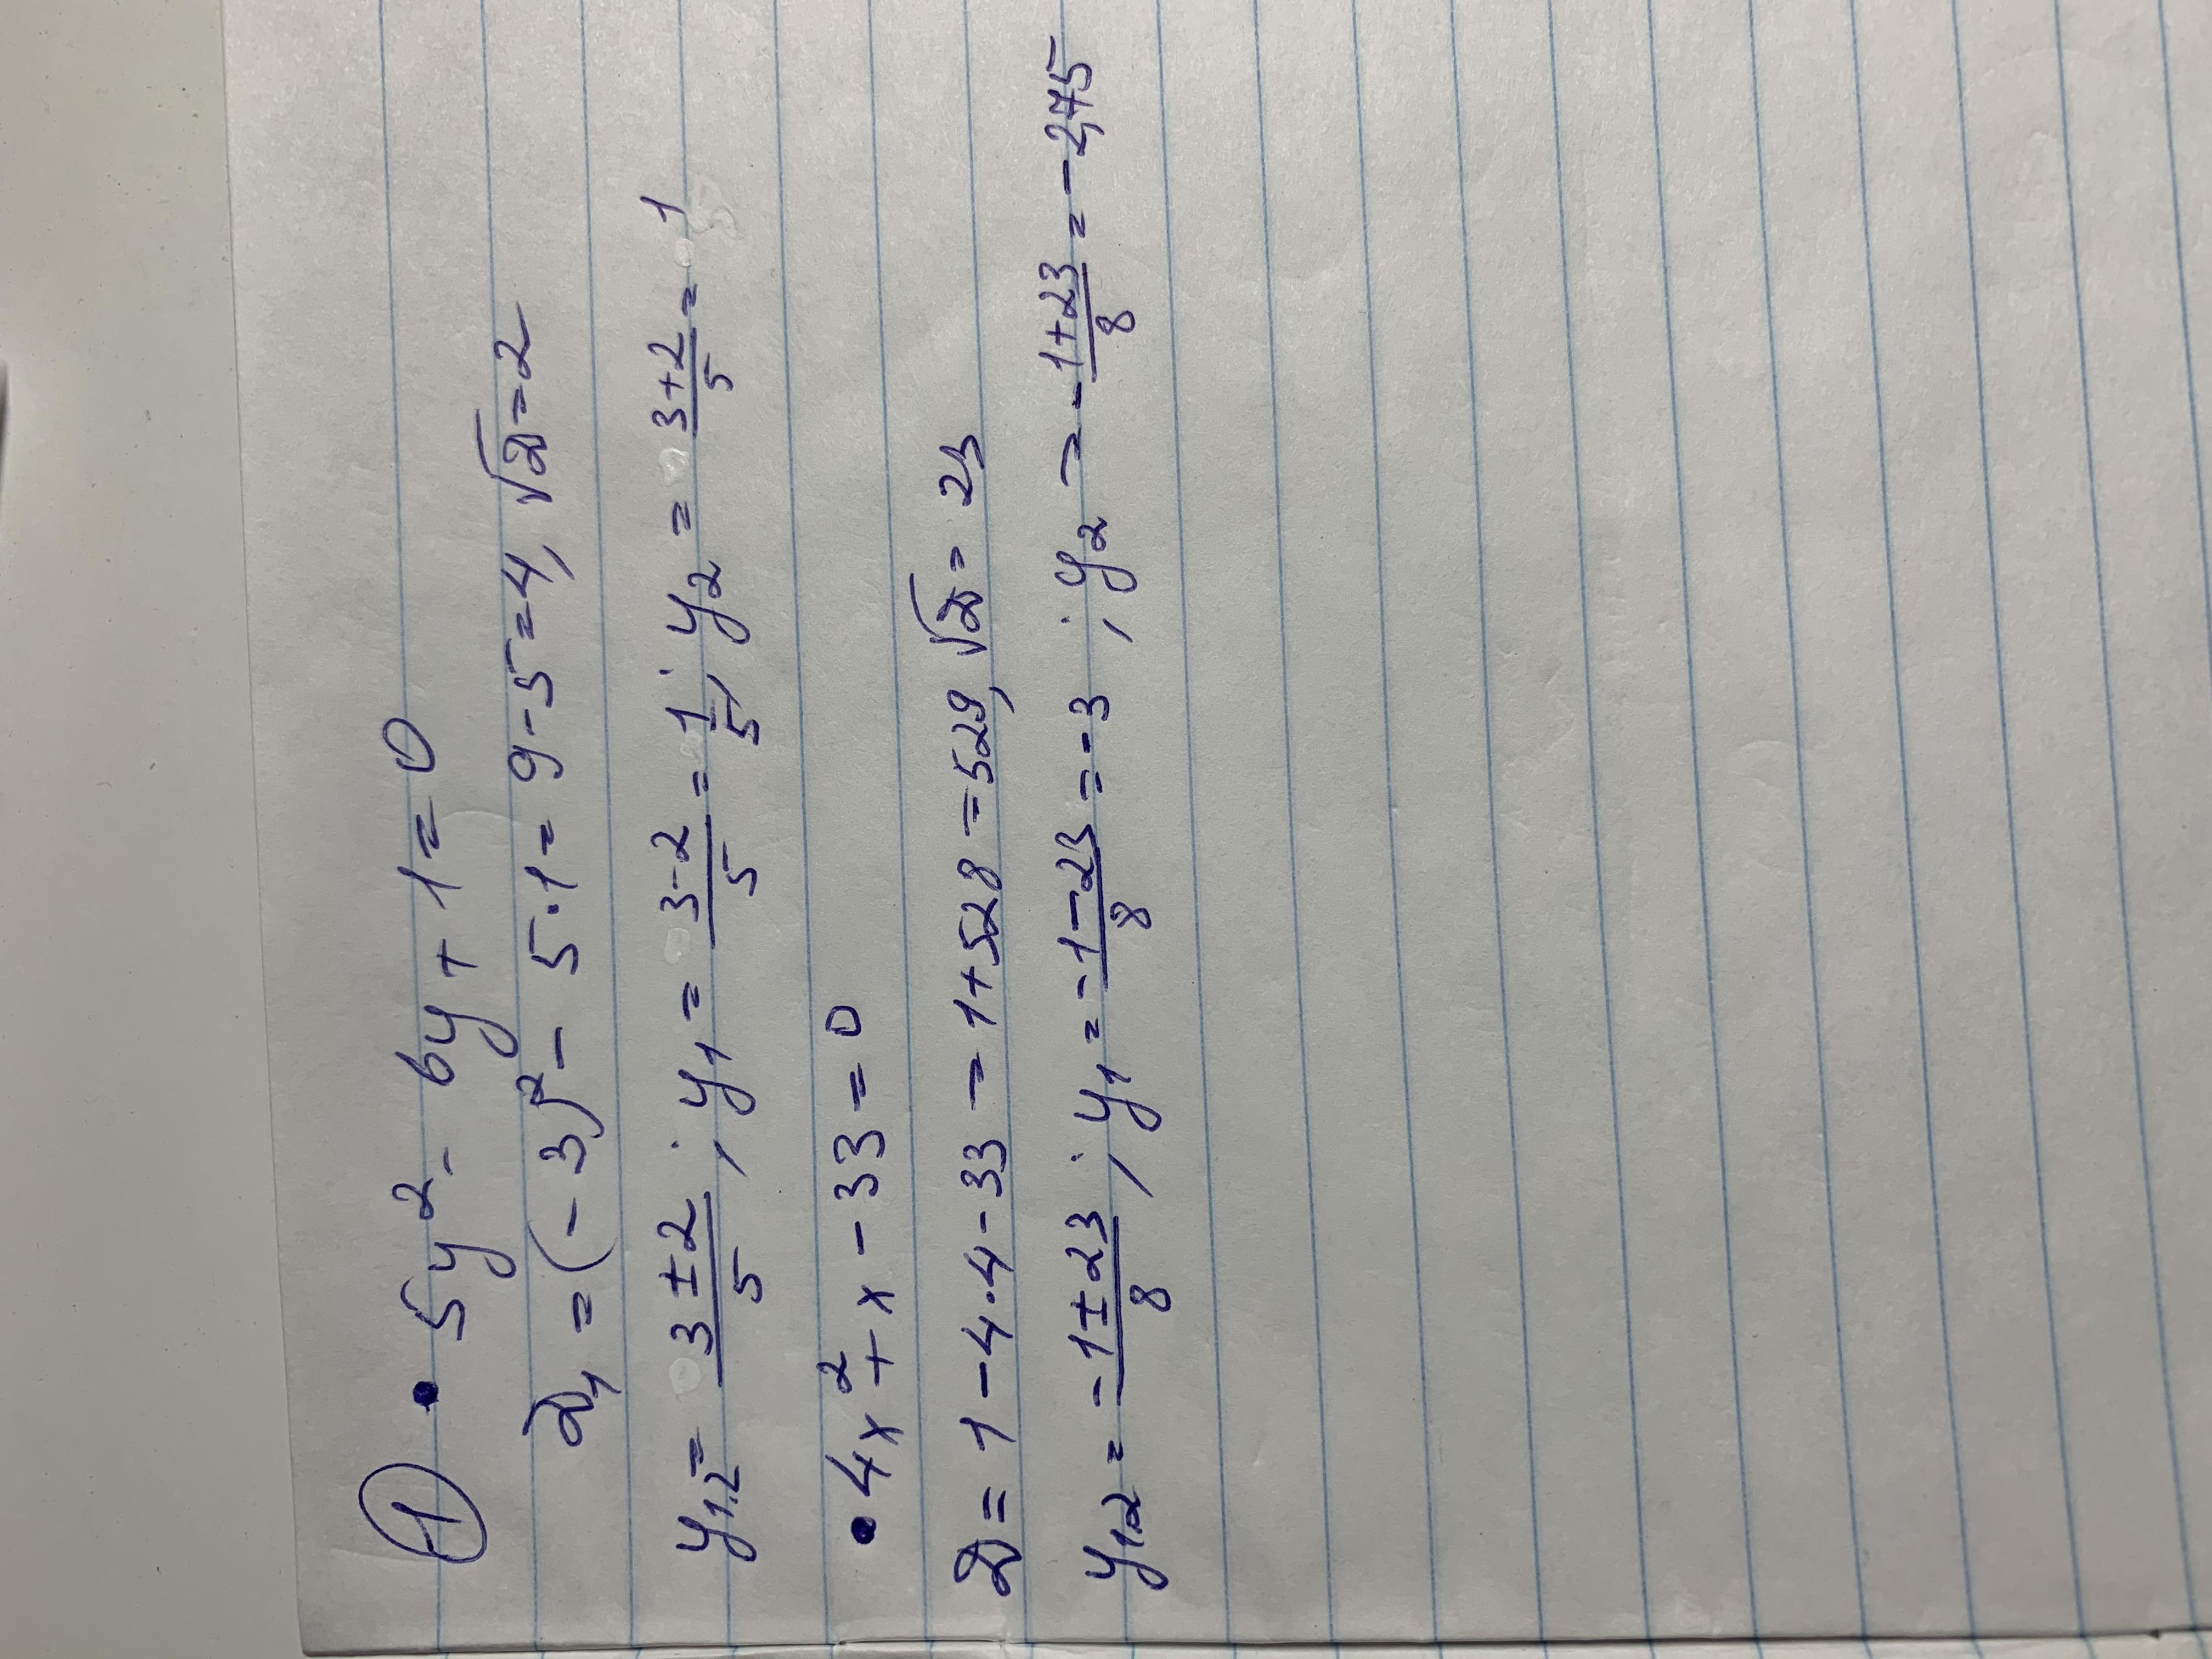 ① • 5y² - 6y + 1 = 0
D₁ = (-3)² - 5·1 = 9 - 5 = 4, √D = 2
y₁,₂ = (3 ± 2)/5 ; y₁ = (3 - 2)/5 = 1/5 ; y₂ = (3 + 2)/5 = 1
• 4x² + x - 33 = 0
D = 1 - 4·4 - 33 = 1 + 528 = 529, √D = 23
y₁,₂ = (-1 ± 23)/8 ; y₁ = (-1 - 23)/8 = -3 ; y₂ = (-1 + 23)/8 = -2,75